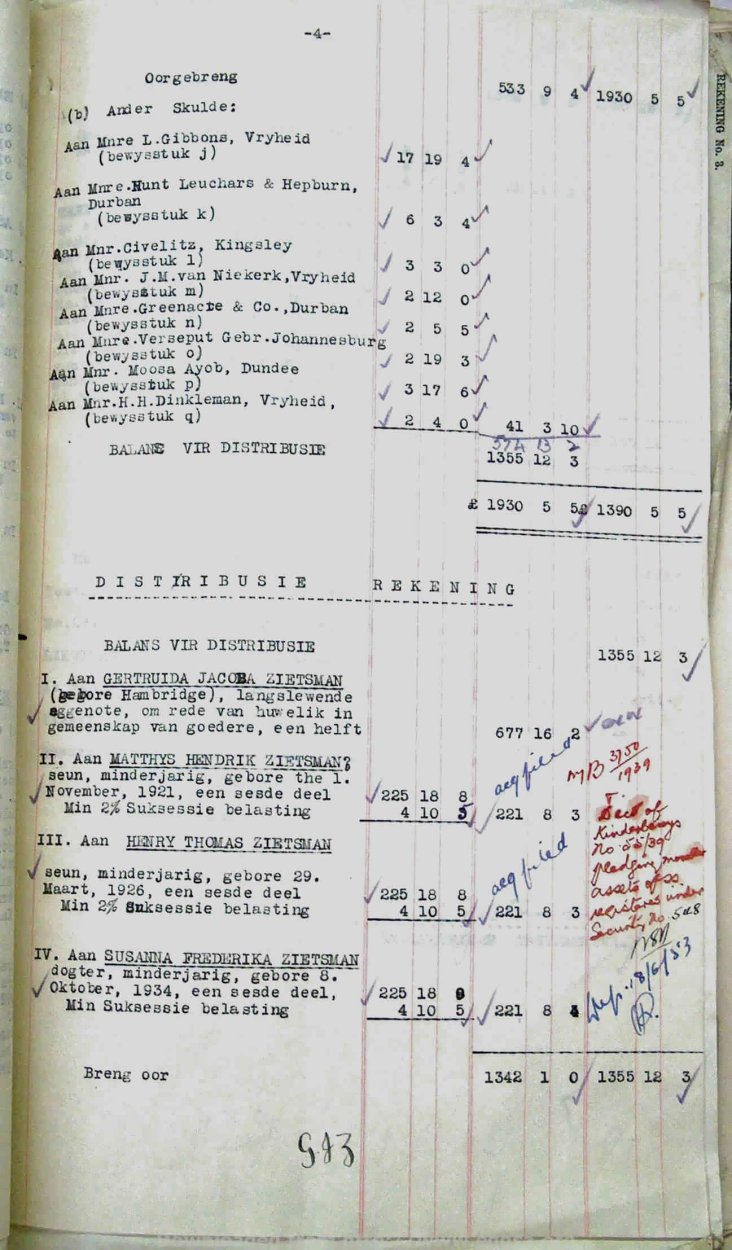 -4-
REKENING No. 3.
Oorgebreng 533 9 4 1930 5 5
(b) Ander Skulde:
Aan Mnre L.Gibbons, Vryheid
(bewysstuk j) 17 19 4
Aan Mnre.Hunt Leuchars & Hepburn,
Durban
(bewysstuk k) 6 3 4
Aan Mnr.Civelitz, Kingsley
(bewysstuk l) 3 3 0
Aan Mnr. J.M.van Niekerk,Vryheid
(bewysstuk m) 2 12 0
Aan Mnre.Greenacre & Co.,Durban
(bewysstuk n) 2 5 5
Aan Mnre.Verseput Gebr.Johannesburg
(bewysstuk o) 2 19 3
Aan Mnr. Moosa Ayob, Dundee
(bewysstuk p) 3 17 6
Aan Mnr.H.H.Dinkleman, Vryheid,
(bewysstuk q) 2 4 0 41 3 10
574 13 2
BALANS VIR DISTRIBUSIE 1355 12 3
£ 1930 5 5 £ 1390 5 5
DISTRIBUSIE REKENING
BALANS VIR DISTRIBUSIE 1355 12 3
I. Aan GERTRUIDA JACOBA ZIETSMAN
(gebore Hambridge), langslewende
eggenote, om rede van huwelik in
gemeenskap van goedere, een helft 677 16 2
II. Aan MATTHYS HENDRIK ZIETSMAN?
seun, minderjarig, gebore the 1.
November, 1921, een sesde deel 225 18 8
Min 2% Suksessie belasting 4 10 5 221 8 3
MB 3750/1939
III. Aan HENRY THOMAS ZIETSMAN
seun, minderjarig, gebore 29.
Maart, 1926, een sesde deel 225 18 8
Min 2% Suksessie belasting 4 10 5 221 8 3
Kinderbewys
No 55/39
pledging
assets
registered under
Security No. 548
IV. Aan SUSANNA FREDERIKA ZIETSMAN
dogter, minderjarig, gebore 8.
Oktober, 1934, een sesde deel, 225 18 8
Min Suksessie belasting 4 10 5 221 8 4
18/6/53
Breng oor 1342 1 0 1355 12 3